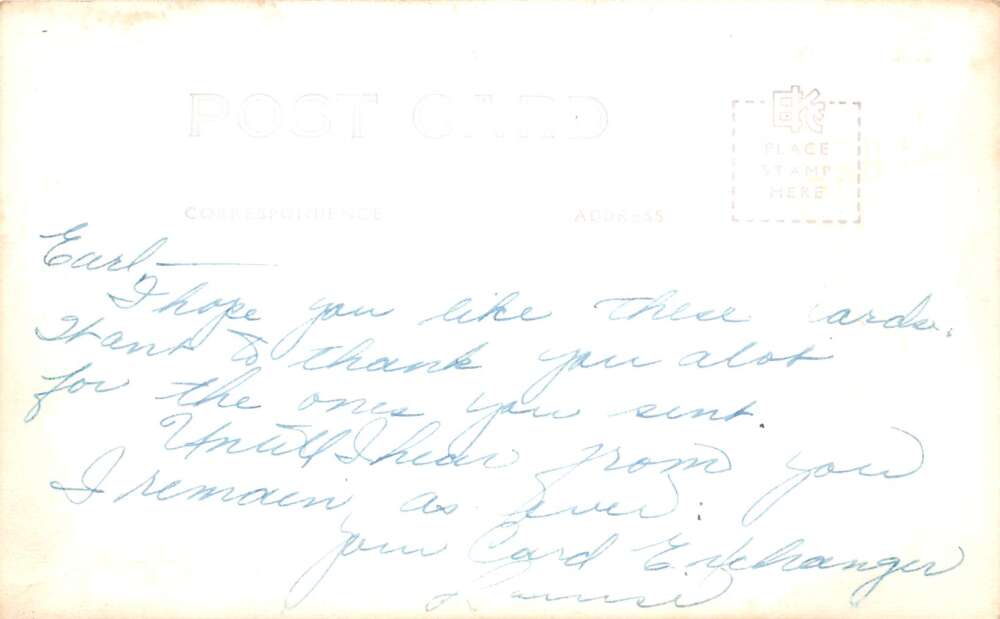 POST CARD
EKC
PLACE
STAMP
HERE
CORRESPONDENCE
ADDRESS
Earl —
I hope you like these cards.
I want to thank you alot
for the ones you sent.
Untill I hear from you
I remain as ever:
your Card Exchanger
Louise